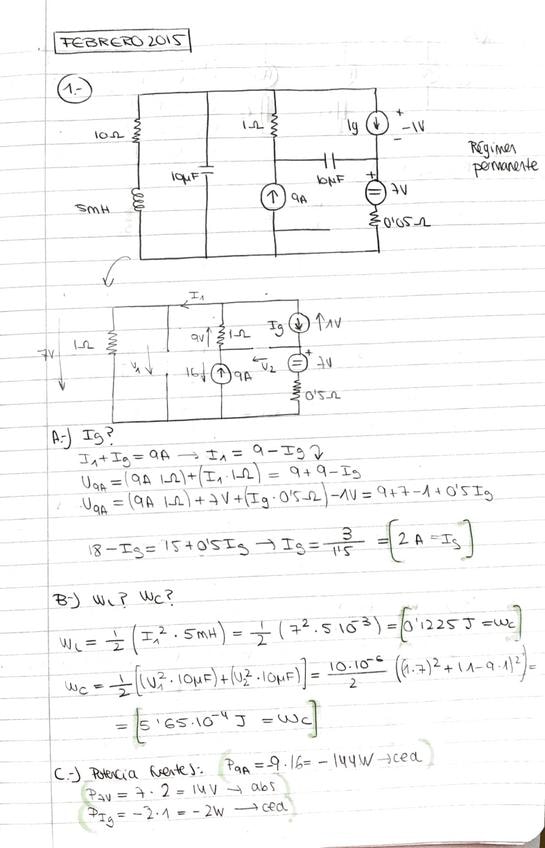 FEBRERO 2015
1.-
10Ω
5mH
10μF
1Ω
9A
10μF
Ig
+
-1V
-
+
7V
0'05Ω
Régimen
permanente
I1
7V
1Ω
V1
9V
1Ω
16
9A
V2
Ig
1V
+
7V
0'5Ω
A.-) Ig?
I1 + Ig = 9A → I1 = 9 - Ig
U9A = (9A·1Ω) + (I1·1Ω) = 9 + 9 - Ig
U9A = (9A·1Ω) + 7V + (Ig·0'5Ω) - 1V = 9 + 7 - 1 + 0'5 Ig
18 - Ig = 15 + 0'5 Ig → Ig = 3/1'5 = [2A = Ig]
B.-) WL? WC?
WL = 1/2 (I1²·5mH) = 1/2 (7²·5·10⁻³) = [0'1225 J = WC]
WC = 1/2 [(V1²·10μF) + (V2²·10μF)] = 10·10⁻⁶/2 ((1·7)² + (1-9·1)²) =
= [5'65·10⁻⁴ J = WC]
C.-) Potencia fuentes: (P9A = -9·16 = -144W → ced)
(P7V = 7·2 = 14V → abs)
(PIg = -2·1 = -2W → ced)